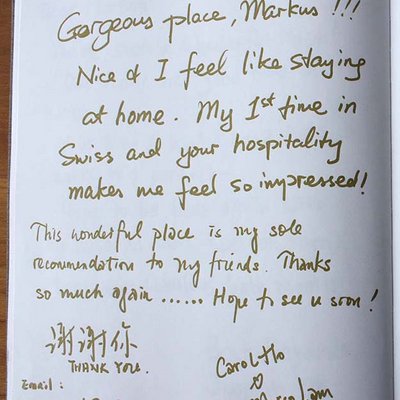 Gorgeous place, Markus !!!
Nice & I feel like staying
at home. My 1st time in
Swiss and your hospitality
makes me feel so impressed!
This wonderful place is my sole
recommendation to my friends. Thanks
so much again ...... Hope to see u soon!
谢谢你
THANK YOU.
Carol Ho
Email: